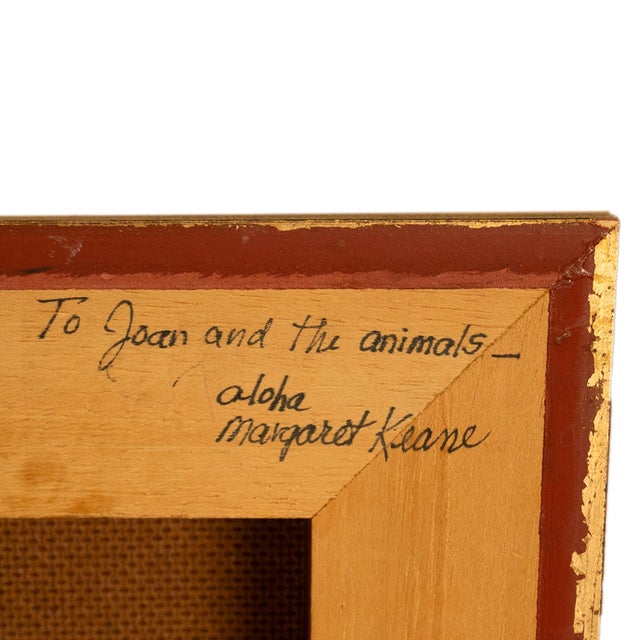 To Joan and the animals—
aloha
Margaret Keane